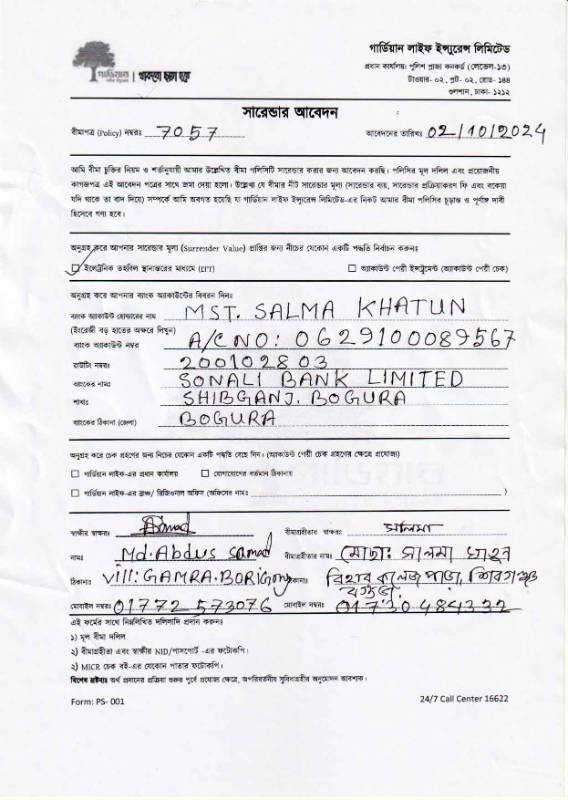 গার্ডিয়ান লাইফ ইন্স্যুরেন্স লিমিটেড
প্রধান কার্যালয়: পুলিশ প্লাজা কনকর্ড (লেভেল-১৩)
টাওয়ার- ০২, প্লট- ০২, রোড- ১৪৪
গুলশান, ঢাকা- ১২১২
সারেন্ডার আবেদন
বীমাপত্র (Policy) নম্বরঃ 7057 আবেদনের তারিখঃ 02/10/2024
আমি বীমা চুক্তির নিয়ম ও শর্তানুযায়ী আমার উল্লেখিত বীমা পলিসিটি সারেন্ডার করার জন্য আবেদন করছি। পলিসির মূল দলিল এবং প্রয়োজনীয়
কাগজপত্র এই আবেদন পত্রের সাথে জমা দেয়া হলো। উল্লেখ্য যে বীমার নীট সারেন্ডার মূল্য (সারেন্ডার ব্যয়, সারেন্ডার প্রক্রিয়াকরণ ফি এবং বকেয়া
যদি থাকে তা বাদ দিয়ে) সম্পর্কে আমি অবগত হয়েছি যা গার্ডিয়ান লাইফ ইন্স্যুরেন্স লিমিটেড-এর নিকট আমার বীমা পলিসির চূড়ান্ত ও পূর্ণাঙ্গ দাবী
হিসেবে গণ্য হবে।
অনুগ্রহ করে আপনার সারেন্ডার মূল্য (Surrender Value) প্রাপ্তির জন্য নীচের যেকোন একটি পদ্ধতি নির্বাচন করুনঃ
ইলেক্ট্রনিক তহবিল স্থানান্তরের মাধ্যমে (EFT) অ্যাকাউন্ট পেয়ী ইন্সট্রুমেন্ট (অ্যাকাউন্ট পেয়ী চেক)
অনুগ্রহ করে আপনার ব্যাংক অ্যাকাউন্টের বিবরন দিনঃ
ব্যাংক অ্যাকাউন্ট হোল্ডারের নাম MST. SALMA KHATUN
(ইংরেজী বড় হাতের অক্ষরে লিখুন)
ব্যাংক অ্যাকাউন্ট নম্বর A/C NO: 0629100089567
রাউটিং নম্বরঃ 200102803
ব্যাংকের নামঃ SONALI BANK LIMITED
শাখাঃ SHIBGANJ. BOGURA
ব্যাংকের ঠিকানা (জেলা) BOGURA
অনুগ্রহ করে চেক গ্রহণের জন্য নিচের যেকোন একটি পদ্ধতি বেছে নিন। (অ্যাকাউন্ট পেয়ী চেক গ্রহণের ক্ষেত্রে প্রযোজ্য)
গার্ডিয়ান লাইফ-এর প্রধান কার্যালয় যোগাযোগের বর্তমান ঠিকানায়
গার্ডিয়ান লাইফ-এর ব্রাঞ্চ/ রিজিওনাল অফিস (অফিসের নামঃ )
স্বাক্ষীর স্বাক্ষরঃ বীমাগ্রহীতার স্বাক্ষরঃ সালমা
নামঃ Md. Abdus samad বীমাগ্রহীতার নামঃ মোছাঃ সালমা খাতুন
ঠিকানাঃ Vill: GAMRA. ঠিকানাঃ বিহার কলেজ পাড়া, শিবগঞ্জ
বগুড়া.
মোবাইল নম্বরঃ 01772 573076 মোবাইল নম্বরঃ 01730484332
এই ফর্মের সাথে নিম্নলিখিত দলিলাদি প্রদান করুনঃ
১) মূল বীমা দলিল
২) বীমাগ্রহীতা এবং স্বাক্ষীর NID/পাসপোর্ট -এর ফটোকপি।
২) MICR চেক বই-এর যেকোন পাতার ফটোকপি।
বিশেষ দ্রষ্টব্যঃ অর্থ প্রদানের প্রক্রিয়া শুরুর পূর্বে প্রযোজ্য ক্ষেত্রে, অপরিবর্তনীয় সুবিধাভোগীর অনুমোদন আবশ্যক।
Form: PS- 001 24/7 Call Center 16622